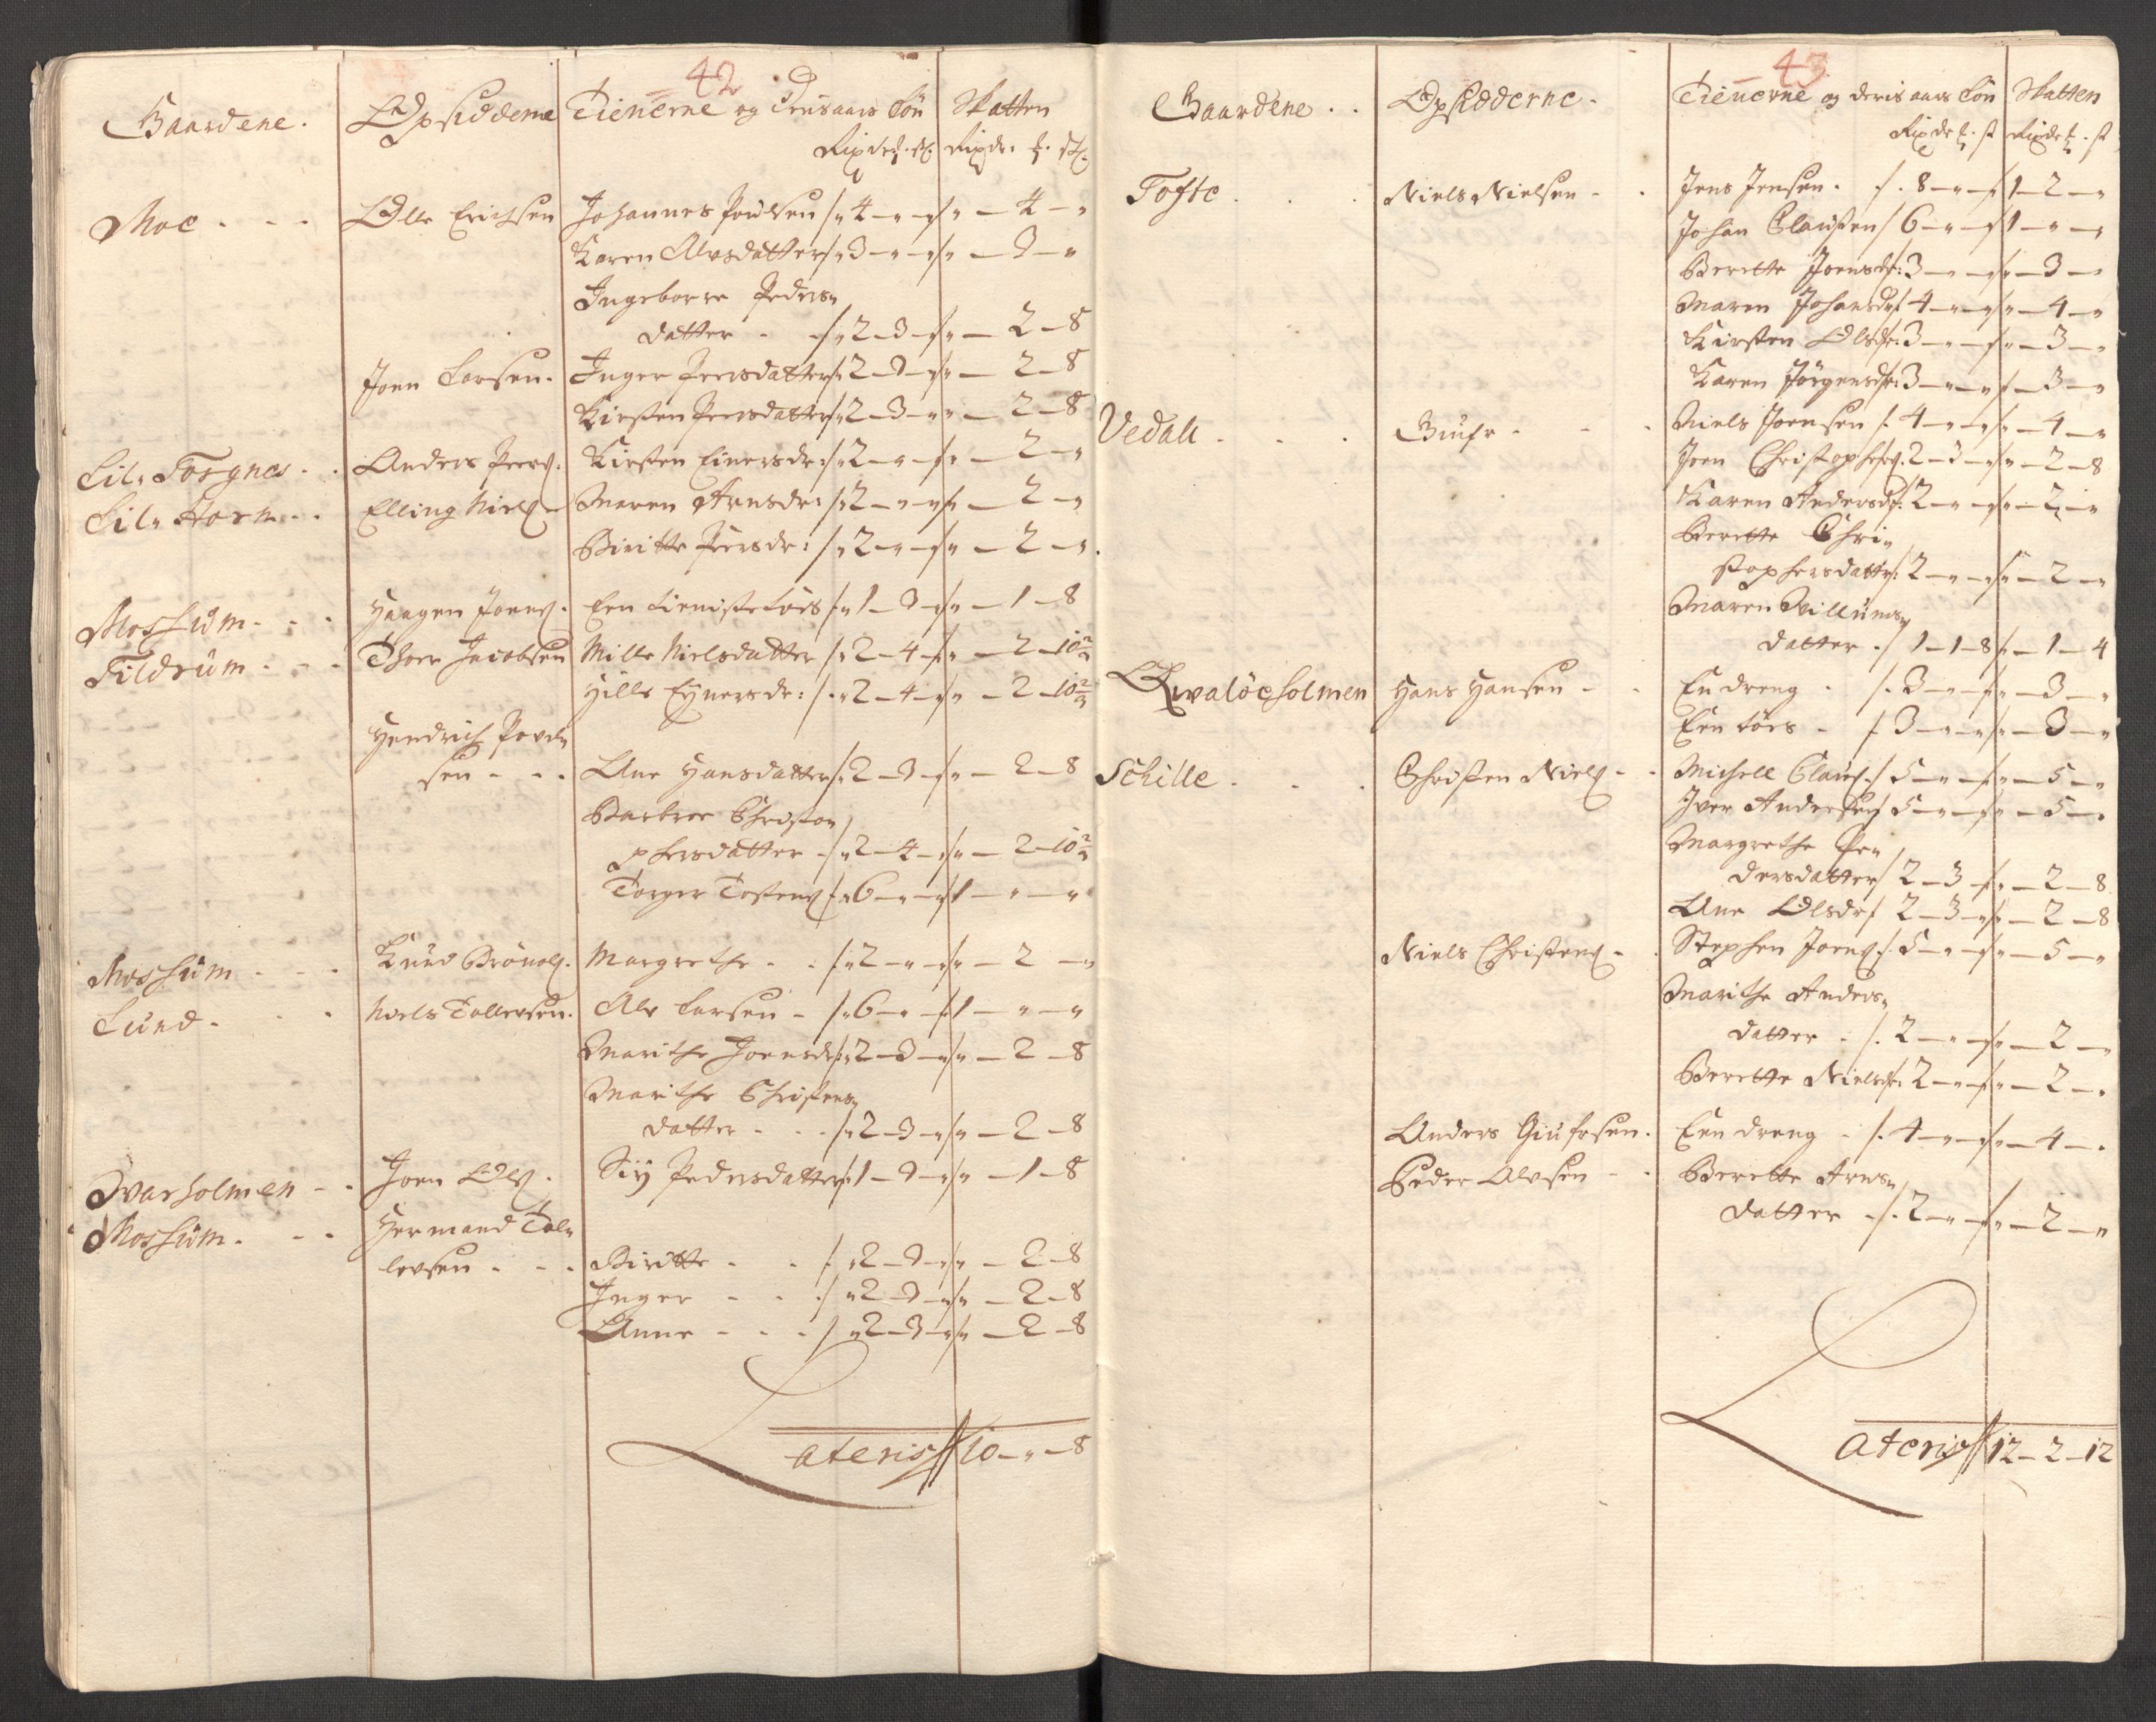 42
Gaardene. Opsidderne Tienerne og Deris aars Løn Skatten
Rixdr. . . Rixdr. . .
Moe Olle Erichsen Johannes Poulsen 4 — 4 —
Karen Alvsdatter 3 — 3 —
Ingeborre Peders
datter 2 — 3 — 2 — 8
Joen Larsen. Inger Peersdatter 2 — 3 — 2 — 8
Kirsten Peersdatter 2 — 3 — 2 — 8
Lil. Torgnes Anders Peers. Kirsten Einersdr: 2 — 2 —
Lil. Horn Elling Niels. Maren Arnsdr: 2 — 2 —
Biritte Peersdr: 2 — 2 —
Moshiim Haagen Joens. Een tieniste tøes 1 — 3 — 1 — 8
Tildrum Thoer Jacobsen Mille Nielsdatter 2 — 4 — 2 — 10 2/3
Hille Eynersdr: 2 — 4 — 2 — 10 2/3
Hendrich Povel
sen Ane Hansdatter 2 — 3 — 2 — 8
Barbroe Christo
phersdatter 2 — 4 — 2 — 10 2/3
Torger Tostens. 6 — 1 —
Moshiim Knud Brønols. Margrethe 2 — 2 —
Lund Niels Tollevsen. Alv Larsen 6 — 1 —
Marithe Joensdr. 2 — 3 — 2 — 8
Marithe Christens
datter 2 — 3 — 2 — 8
Tvarholmen Joen Ols. Siy Pedersdatter 1 — 3 — 1 — 8
Moshiim Hermand Tol
levsen Biritte 2 — 3 — 2 — 8
Inger 2 — 3 — 2 — 8
Anne 2 — 3 — 2 — 8
Lateris 10 — „ — 8
43
Gaardene Opsidderne. Tienerne og deris aars Løn Skatten
Rixdr . . Rixdr . .
Tofte Niels Nielsen Jens Jensen. 8 — 1 — 2 —
Johan Clausen 6 — 1 —
Berette Joensdr: 3 — 3 —
Maren Johansdr 4 — 4 —
Kirsten Olsdr: 3 — 3 —
Karen Jørgensdr: 3 — 3 —
Vedall Giufr Niels Joensen 4 — 4 —
Joen Christophers. 2 — 3 — 2 — 8
Karen Andersdr. 2 — 2 —
Berette Chri
stophersdatter: 2 — 2 —
Maren Villums
datter 1 — 1 — 8 — 1 — 4
Qvaløeholmen Hans Hansen En dreng 3 — 3 —
Een tøes 3 — 3 —
Schille Christen Niels. Michell Claus. 5 — 5 —
Iver Andersen 5 — 5 —
Margrethe Pe
dersdatter 2 — 3 — 2 — 8
Ane Olsdr 2 — 3 — 2 — 8
Niels Christens. Stephen Joens. 5 — 5 —
Marithe Anders
datter 2 — 2 —
Berette Nielsdr: 2 — 2 —
Anders Giufrsen. Een dreng 4 — 4 —
Peder Alvsen Berette Arns
datter 2 — 2 —
Lateris 12 — 2 — 12